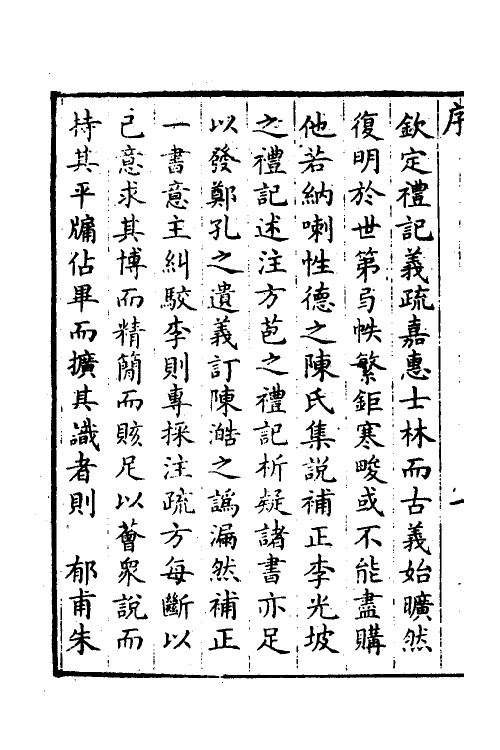 序
一
欽定禮記義疏嘉惠士林而古義始曠然
復明於世第㢧帙繁鉅寒畯或不能盡購
他若納喇性德之陳氏集說補正李光坡
之禮記述注方苞之禮記析疑諸書亦足
以發鄭孔之遺義訂陳澔之譌漏然補正
一書意主糾駮李則專採注疏方每斷以
己意求其博而精簡而賅足以薈眾說而
持其平牖佔畢而擴其識者則　郁甫朱